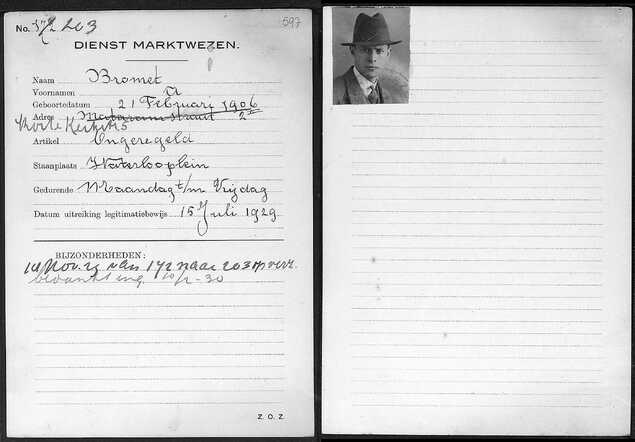 597
No. 172 203
DIENST MARKTWEZEN.
Naam Bromet
Voornamen A
Geboortedatum 21 Februari 1906
Adres Mataramstraat 2
Korte Kerkstr 5
Artikel Ongeregeld
Staanplaats Waterlooplein
Gedurende Maandag t/m Vrijdag
Datum uitreiking legitimatiebewijs 15 Juli 1929
BIJZONDERHEDEN:
14 Nov. 29 van 172 naar 203 op verz.
10/2-30
Z. O. Z.